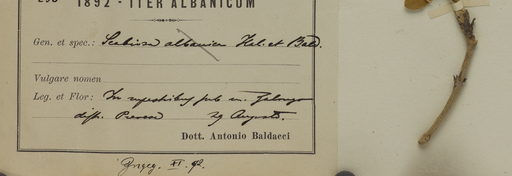 1892 - ITER ALBANICUM
Gen. et spec.: Scabiosa albanica Hal. et Bald.
Vulgare nomen
Leg. et Flor: In rupestribus sub m.
distr. 29 Augusti.
Dott. Antonio Baldacci
XI. 92.